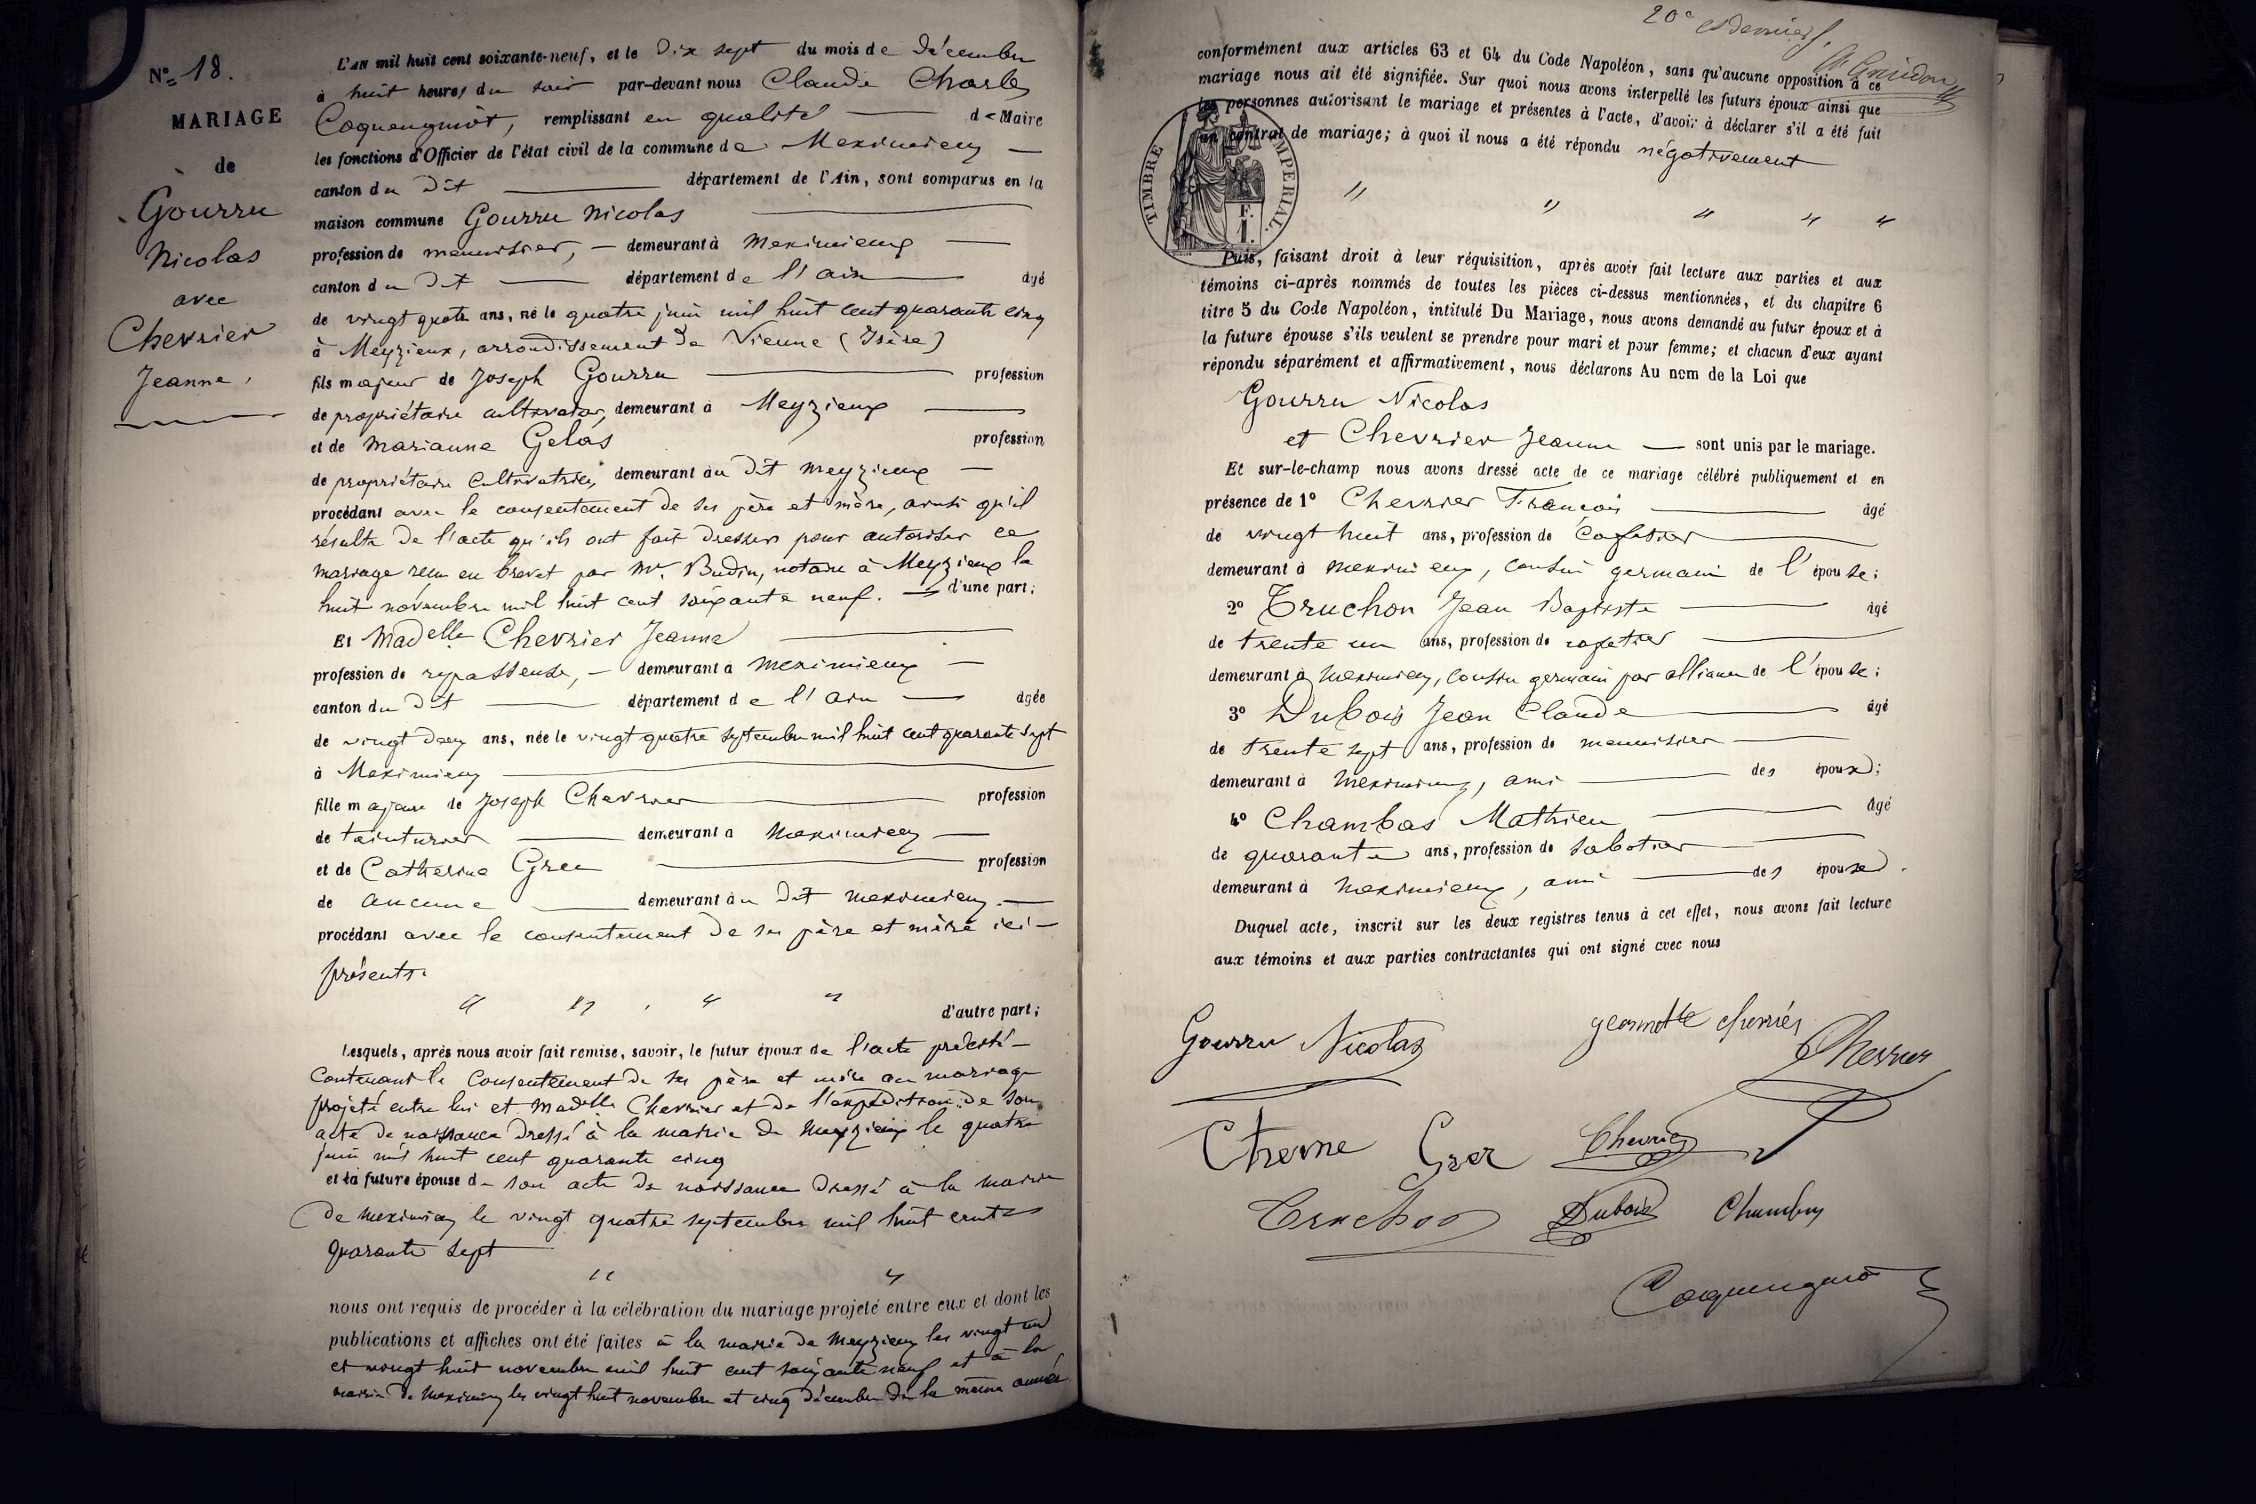 N° 18.
MARIAGE
de
Gourru
Nicolas
avec
Chevrier
Jeanne.
L'AN mil huit cent soixante-neuf, et le Dix sept du mois de Décembre
à huit heures du soir par-devant nous Claude Charles
Coquengniot, remplissant en qualité de Maire
les fonctions d'Officier de l'état civil de la commune de Meximieux
canton du Dit département de l'Ain, sont comparus en la
maison commune Gourru Nicolas
profession de menuisier, demeurant à Meximieux
canton du Dit département de l'ain âgé
de vingt quatre ans, né le quatre juin mil huit cent quarante cinq
à Meyzieux, arrondissement de Vienne (Isère)
fils majeur de Joseph Gourru profession
de propriétaire cultivateur, demeurant à Meyzieux
et de Marianne Gelas profession
de propriétaire cultivatrice, demeurant au Dit Meyzieux
procédant avec le consentement de ses père et mère, ainsi qu'il
résulte de l'acte qu'ils ont fait dresser pour autoriser ce
mariage reçu en brevet par Mr. Budin, notaire à Meyzieux le
huit novembre mil huit cent soixante neuf. d'une part;
Et Madelle Chevrier Jeanne
profession de repasseuse, demeurant à Meximieux
canton du Dit département de l'ain âgée
de vingt deux ans, née le vingt quatre septembre mil huit cent quarante sept
à Meximieux
fille majeure de Joseph Chevrier profession
de teinturier demeurant à Meximieux
et de Catherine Gree profession
de aucune demeurant au Dit Meximieux
procédant avec le consentement de ses père et mère ici-
présents.
" " " " d'autre part;
Lesquels, après nous avoir fait remise, savoir, le futur époux de l'acte précité
contenant le consentement de ses père et mère au mariage
projeté entre lui et Madelle Chevrier et de l'expédition de son
acte de naissance dressé à la mairie de Meyzieux le quatre
juin mil huit cent quarante cinq
et la future épouse de son acte de naissance dressé à la mairie
de Meximieux le vingt quatre septembre mil huit cent
quarante sept
" "
nous ont requis de procéder à la célébration du mariage projeté entre eux et dont les
publications et affiches ont été faites à la mairie de Meyzieux les vingt un
et vingt huit novembre mil huit cent soixante neuf et à la
mairie de Meximieux les vingt huit novembre et cinq décembre de la même année
20e et dernier f.
conformément aux articles 63 et 64 du Code Napoléon, sans qu'aucune opposition à ce
mariage nous ait été signifiée. Sur quoi nous avons interpellé les futurs époux ainsi que
les personnes autorisant le mariage et présentes à l'acte, d'avoir à déclarer s'il a été fait
un contrat de mariage; à quoi il nous a été répondu négativement
TIMBRE IMPERIAL.
F.
1.
" " " " "
Puis, faisant droit à leur réquisition, après avoir fait lecture aux parties et aux
témoins ci-après nommés de toutes les pièces ci-dessus mentionnées, et du chapitre 6
titre 5 du Code Napoléon, intitulé Du Mariage, nous avons demandé au futur époux et à
la future épouse s'ils veulent se prendre pour mari et pour femme; et chacun d'eux ayant
répondu séparément et affirmativement, nous déclarons Au nom de la Loi que
Gourru Nicolas
et Chevrier Jeanne sont unis par le mariage.
Et sur-le-champ nous avons dressé acte de ce mariage célébré publiquement et en
présence de 1° Chevrier François âgé
de vingt huit ans, profession de Cafetier
demeurant à Meximieux, cousin germain de l'épouse;
2° Truchon Jean Baptiste âgé
de trente un ans, profession de cafetier
demeurant à Meximieux, cousin germain par alliance de l'épouse;
3° Dubois Jean Claude âgé
de trente sept ans, profession de menuisier
demeurant à Meximieux, ami des époux;
4° Chambas Mathieu âgé
de quarante ans, profession de sabotier
demeurant à Meximieux, ami des époux.
Duquel acte, inscrit sur les deux registres tenus à cet effet, nous avons fait lecture
aux témoins et aux parties contractantes qui ont signé avec nous
Gourru Nicolas
Chevrier
Chevrier
Truchon Dubois Chambas
Coquengniot